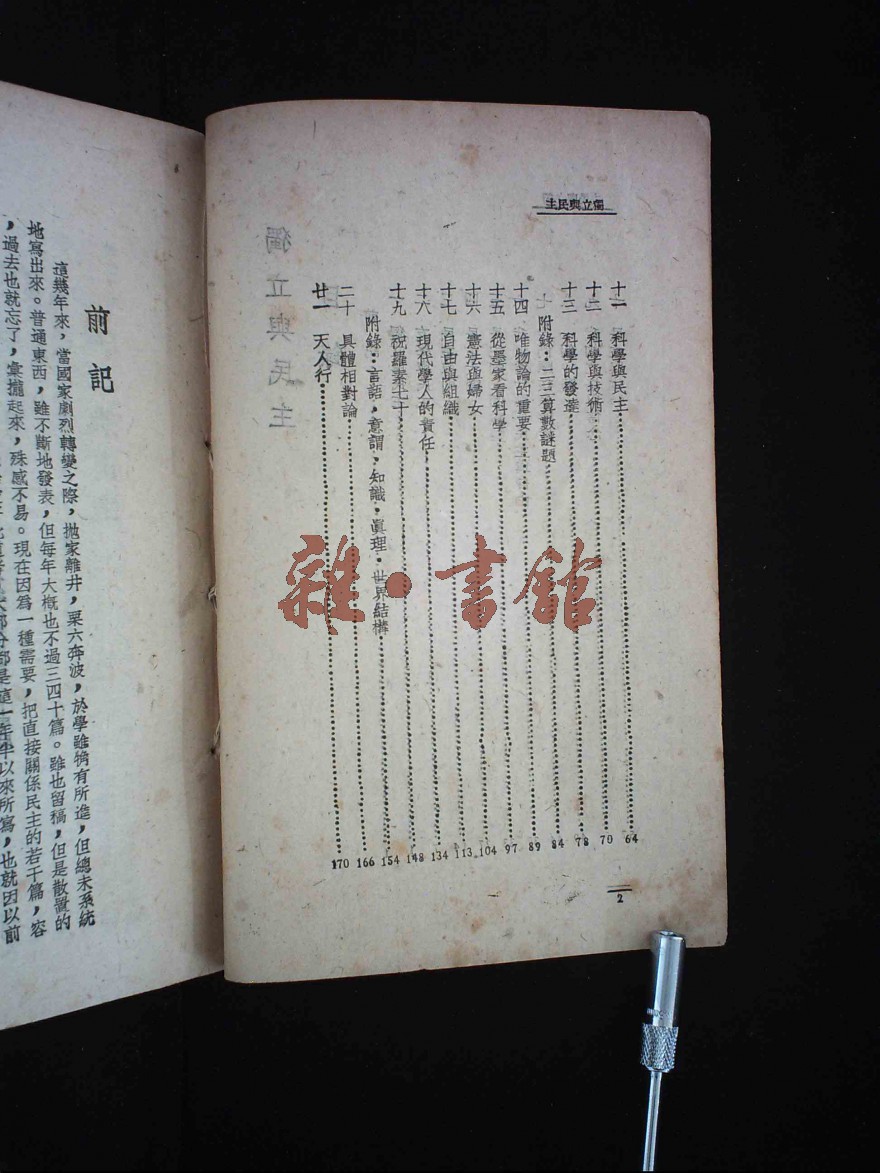 獨立與民主
十一 科學與民主 64
十二 科學與技術 70
十三 科學的發達 78
附錄：二三算數謎題 84
十四 唯物論的重要 89
十五 從墨家看科學 97
十六 憲法與婦女 104
十七 自由與組織 113
十八 現代學人的責任 134
十九 祝羅素七十 148
附錄：言語，意謂，知識，眞理，世界結構 154
二十 具體相對論 166
廿一 天人行 170
2
前記
這幾年來，當國家劇烈轉變之際，拋家離井，栗六奔波，於學雖稍有所進，但總未系統
地寫出來。普通東西，雖不斷地發表，但每年大概也不過三四十篇。雖也留稿，但是散置的
，過去也就忘了，彙攏起來，殊感不易。現在因爲一種需要，把直接關係民主的若干篇，容
大部分都是這一年半以來所寫，也就因以前
雜·書館